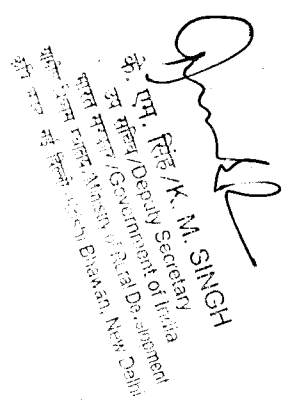 के. एम. सिंह/K. M. SINGH
उप सचिव/Deputy Secretary
भारत सरकार/Government of India
विकास Ministry of Rural Development
नई दिल्ली Krishi Bhawan, New Delhi